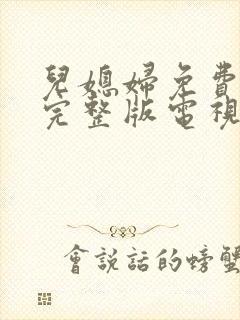 兒媳婦免費
完整版電視
會說話的螃蟹